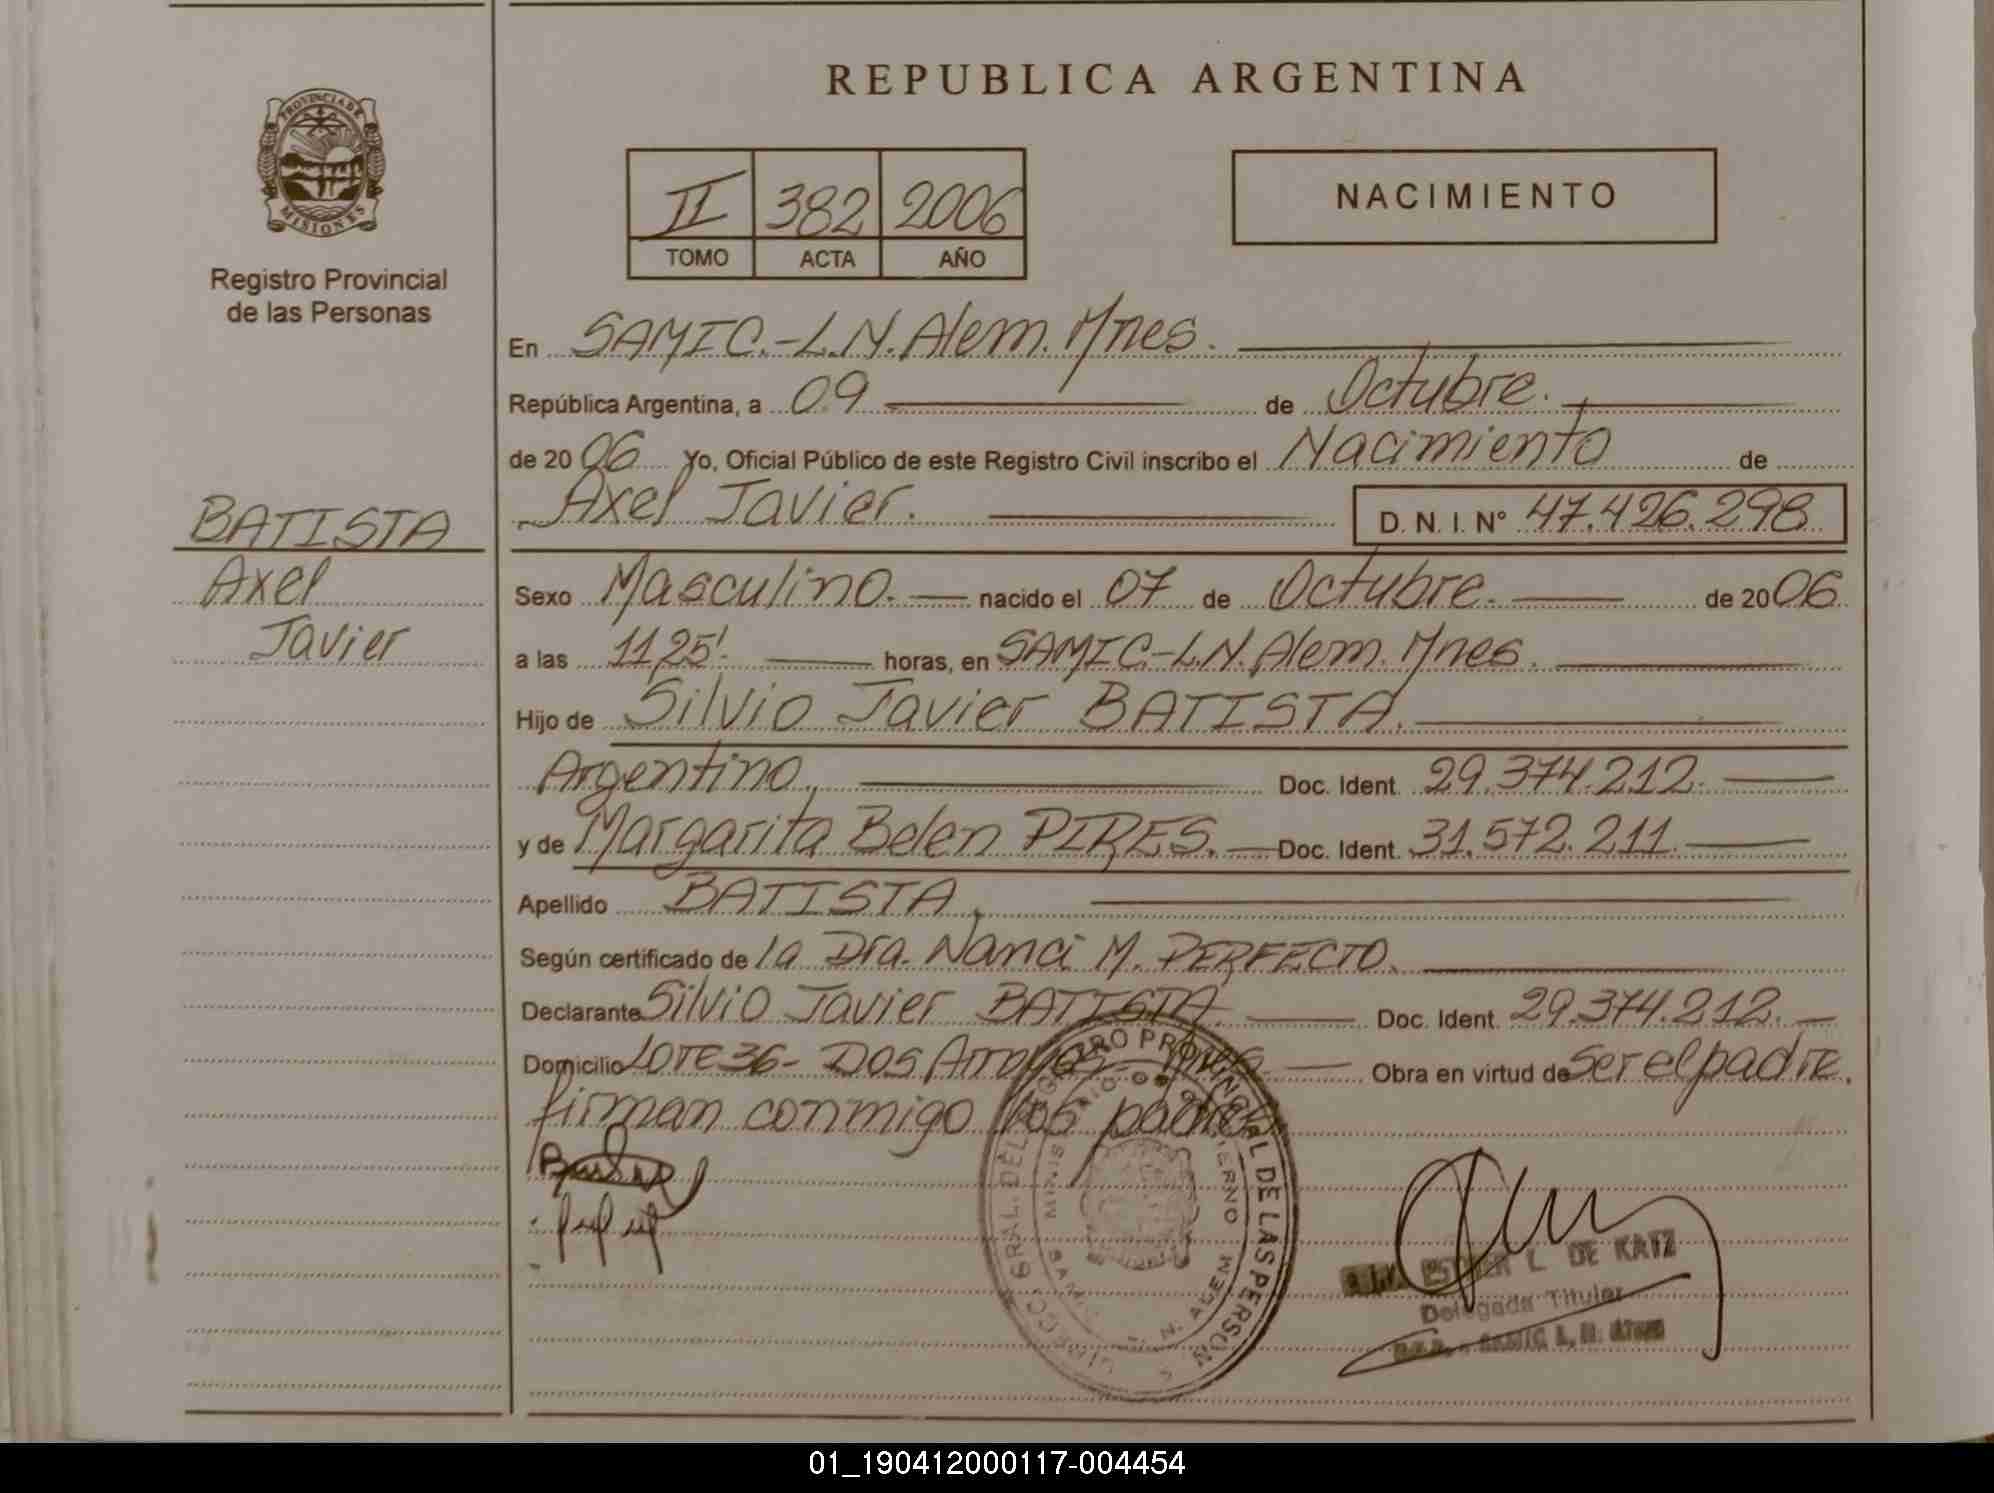 REPUBLICA ARGENTINA
PROVINCIA DE
MISIONES
Registro Provincial
de las Personas
II 382 2006
TOMO ACTA AÑO
NACIMIENTO
En SAMIC.-L.N.Alem. Mnes.
República Argentina, a 09 de Octubre.
de 2006 Yo, Oficial Público de este Registro Civil inscribo el Nacimiento de
Axel Javier. D. N. I. Nº 47.426.298
BATISTA
Axel
Javier
Sexo Masculino. nacido el 07 de Octubre. de 2006
a las 11,25'. horas, en SAMIC.-L.N. Alem. Mnes.
Hijo de Silvio Javier BATISTA.
Argentino, Doc. Ident. 29.374.212.
y de Margarita Belen PIRES. Doc. Ident. 31.572.211.
Apellido BATISTA,
Según certificado de la Dra. Nanci M. PERFECTO.
Declarante Silvio Javier BATISTA. Doc. Ident. 29.374.212.
Domicilio LOTE 36- DOS Arroyos- Mnes. Obra en virtud de Ser el padre,
firman conmigo los padres
GRAL. DEL REGISTRO PROVINCIAL DE LAS PERSONAS
L. N. ALEM
ESTHER L. DE KATZ
Delegada Titular
SAMIC L. N. ALEM
01_190412000117-004454